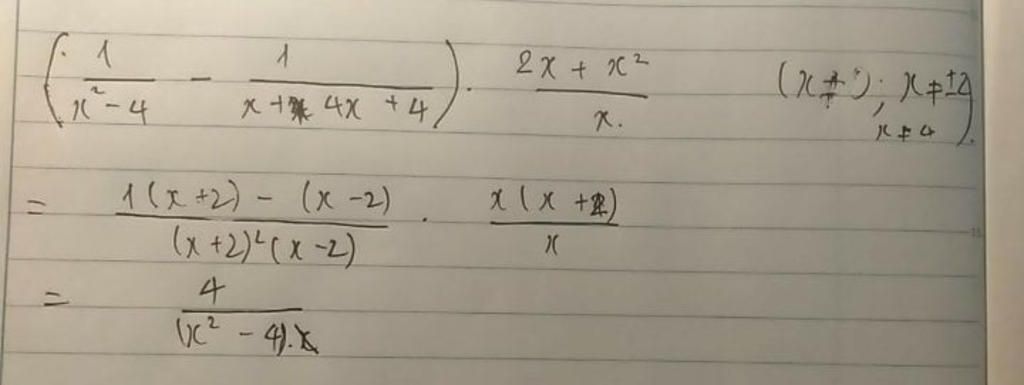 (1/(x² - 4) - 1/(x + 4x + 4)) · (2x + x²)/x. (x ≠ ; x ≠ ±2
x ≠ 4).
= (1(x + 2) - (x - 2))/((x + 2)²(x - 2)) · x(x + 2)/x
= 4/((x² - 4).